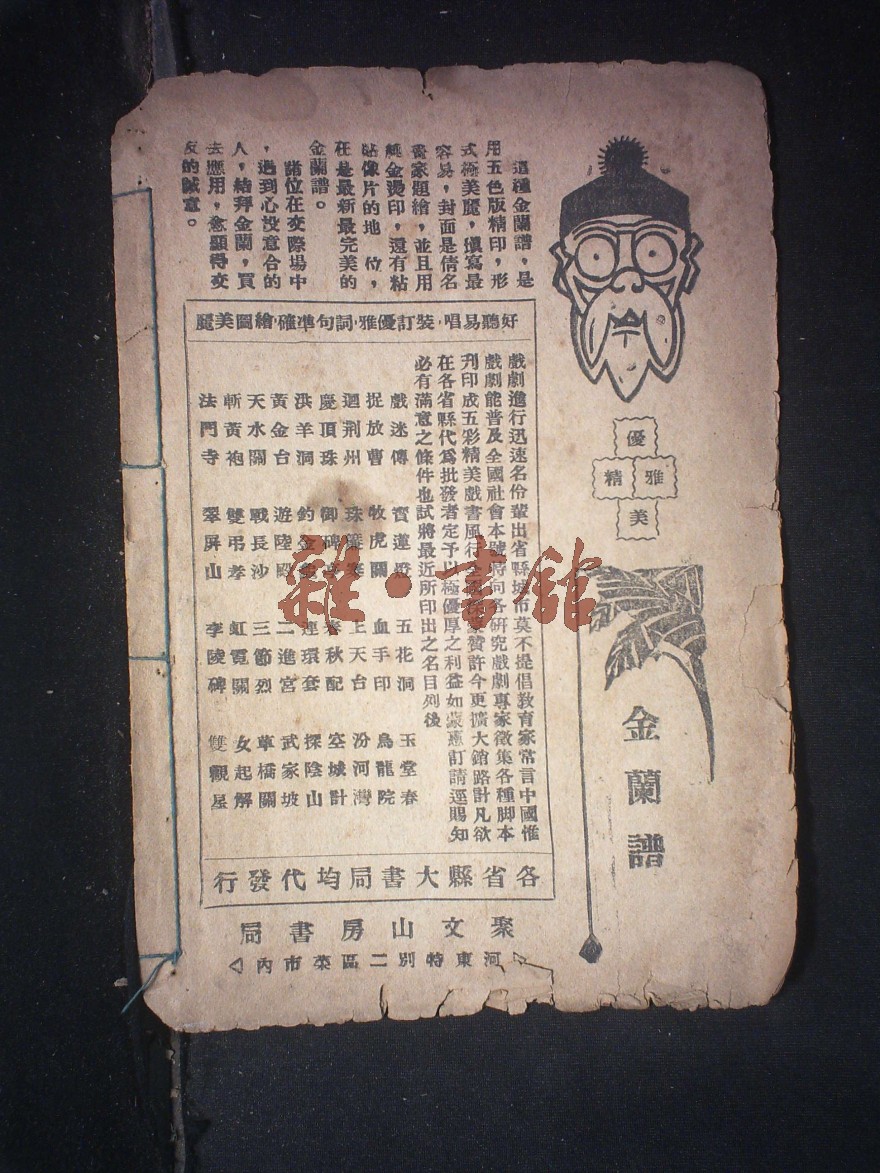 優
雅
精
美
金蘭譜
這種金蘭譜，是
用五色版精印，形
式極美麗，填寫最
容易，封面是倩名
書家題繪，並且用
純金燙印，還有粘
貼像片的地位，
在是最新最完美的
金蘭譜。
諸位在交際場中
，遇到心投意合的
人，結拜金蘭，買
去應用，愈顯得交
友的誠意。
好聽易唱，裝訂優雅，詞句準確，繪圖美麗
戲劇進行迅速名伶輩出省縣城市莫不提倡教育家常言中國惟
戲劇能普及全國社會本號向各研究戲劇專家徵集各種脚本
刊印成五彩精美戲書風行全國蒙贊許今更擴大銷路計凡欲
在各省縣代為批發者定予以極優厚之利益如蒙惠訂請逕賜知
必有滿意之條件也試將最近所印出之名目列後
戲迷傳 寶蓮燈 五花洞 玉堂春
捉放曹 牧虎關 血手印 烏龍院
迴荆州 珠簾寨 上天台 汾河灣
慶頂珠 御碑亭 春秋配 空城計
洪羊洞 釣金龜 連環套 探陰山
黃金台 遊陸殿 二進宮 武家坡
天水關 戰長沙 三節烈 草橋關
斬黃袍 雙弔孝 虹霓關 女起解
法門寺 翠屏山 李陵碑 雙觀星
各省縣大書局均代發行
聚文山房書局
河東特別二區菜市內
雜·書館